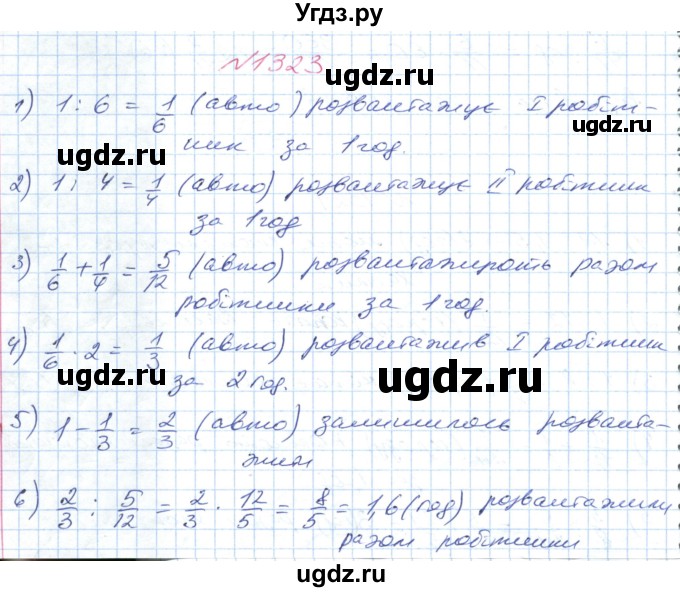 Угдз.ру
№1323
ugdz.ru
1) 1 : 6 = 1/6 (авто) розвантажує I робіт-
ugdz.ru
ник за 1 год.
ugdz.ru
2) 1 : 4 = 1/4 (авто) розвантажує II робітник
за 1 год
3) 1/6 + 1/4 = 5/12 (авто) розвантажують разом
робітники за 1 год.
4) 1/6 · 2 = 1/3 (авто) розвантажив I робітник
за 2 год.
ugdz.ru
ugdz.ru
5) 1 - 1/3 = 2/3 (авто) залишилось розванта-
жити
6) 2/3 : 5/12 = 2/3 · 12/5 = 8/5 = 1,6 (год) розвантажили
разом робітники
ugdz.ru
ugdz.ru